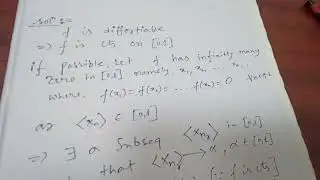 Solⁿ :-
f is differtiable
⇒ f is cts on [0,1]
if possible, let f has infinitely many
zero in [0,1] namely, x₁, x₂, ... xₙ...
where, f(x₁) = f(x₂) = ... f(xₙ) = 0
as ⟨xₙ⟩ ∈ [0,1]
⇒ ∃ a Subseq ⟨xₙ⟩ in [0,1]
that ⟨xₙ⟩ → α, α ∈ [0,1]
[∵ f is cts]